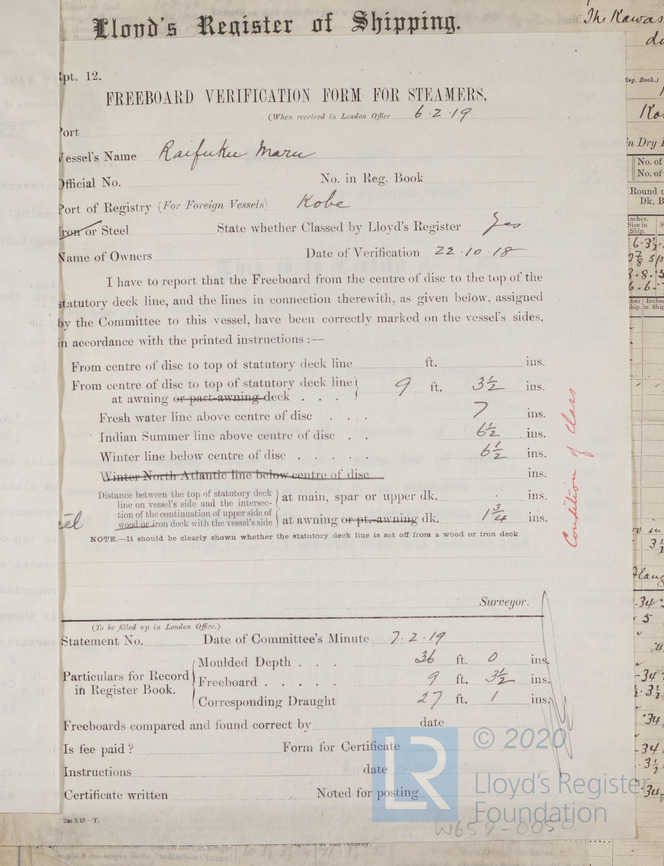 Lloyd's Register of Shipping.
Rpt. 12.
FREEBOARD VERIFICATION FORM FOR STEAMERS.
(When received in London Office 6.2.19
Port
Vessel's Name Raifuku Maru
Official No. No. in Reg. Book
Port of Registry (For Foreign Vessels) Kobe
Iron or Steel State whether Classed by Lloyd's Register Yes
Name of Owners Date of Verification 22.10.18
I have to report that the Freeboard from the centre of disc to the top of the
statutory deck line, and the lines in connection therewith, as given below, assigned
by the Committee to this vessel, have been correctly marked on the vessel's sides,
in accordance with the printed instructions :—
From centre of disc to top of statutory deck line ft. ins.
From centre of disc to top of statutory deck line
at awning or part-awning deck . . . 9 ft. 3½ ins.
Fresh water line above centre of disc . . . 7 ins.
Indian Summer line above centre of disc . . 6½ ins.
Winter line below centre of disc . . . . 6½ ins.
Winter North Atlantic line below centre of disc ins.
Distance between the top of statutory deck
line on vessel's side and the intersec-
tion of the continuation of upper side of
wood or iron deck with the vessel's side
at main, spar or upper dk. ins.
at awning or pt. awning dk. 1¾ ins.
NOTE.—It should be clearly shown whether the statutory deck line is set off from a wood or iron deck
Condition of Class
Surveyor.
(To be filled up in London Office.)
Statement No. Date of Committee's Minute 7.2.19
Particulars for Record
in Register Book.
Moulded Depth . . . 36 ft. 0 ins.
Freeboard . . . . . 9 ft. 3½ ins.
Corresponding Draught 27 ft. 1 ins.
Freeboards compared and found correct by date
Is fee paid ? Form for Certificate
Instructions date
Certificate written Noted for posting
2m 3.18.—T.
© 2020
LR
Lloyd's Register
Foundation
W659-005